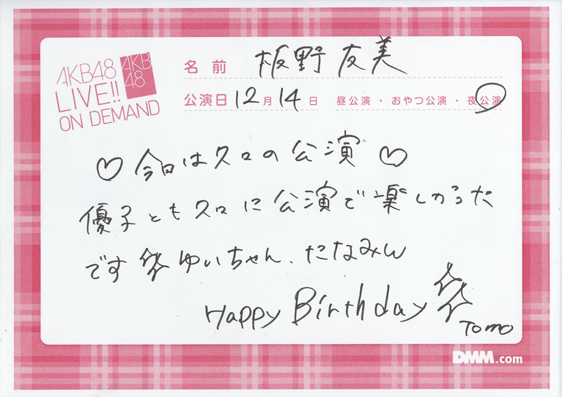 AKB48
LIVE!!
ON DEMAND
AKB
48
名前 板野友美
公演日 12月14日 昼公演・おやつ公演・夜公演
♡今日は久々の公演♡
優子とも久々に公演で楽しかった
です ゆいちゃん、たなみん
Happy Birthday
Tomo
DMM.com